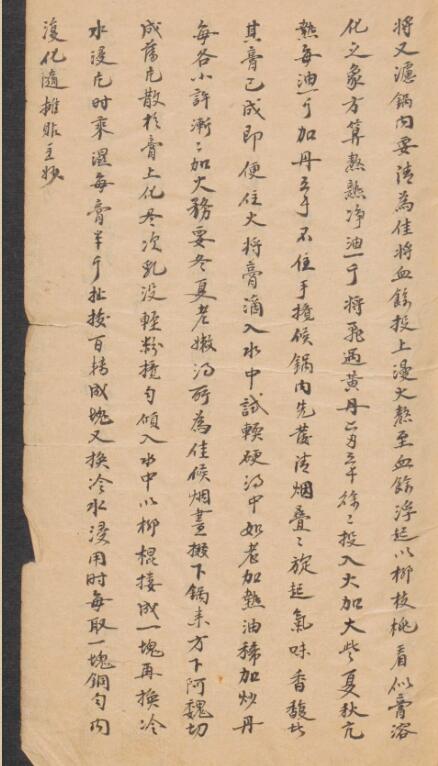 將又濾鍋内要清為佳將血餘投上漫火熬至血餘浮起以柳枝桃看似膏溶
化之象方算熬熟净油一斤將飛過黃丹二两五千徐〻投入火加大些夏秋亢
熱每油一斤加丹五千不住手攪候鍋内先發清烟叠〻旋起氣味香馥
其膏已成即便住火將膏滴入水中試軟硬得中如老加熟油稀加炒丹
每各小許漸〻加火務要冬夏老嫩得所為佳候烟盡掇下鍋来方下阿魏切
成薄片散於膏上化尽次乳没輕粉攪匀傾入水中以柳棍摟成一塊再换冷
水浸片时乘温每膏半斤扯拔百轉成塊又换冷水浸用时每取一塊銅勺内
復化随攤貼至妙